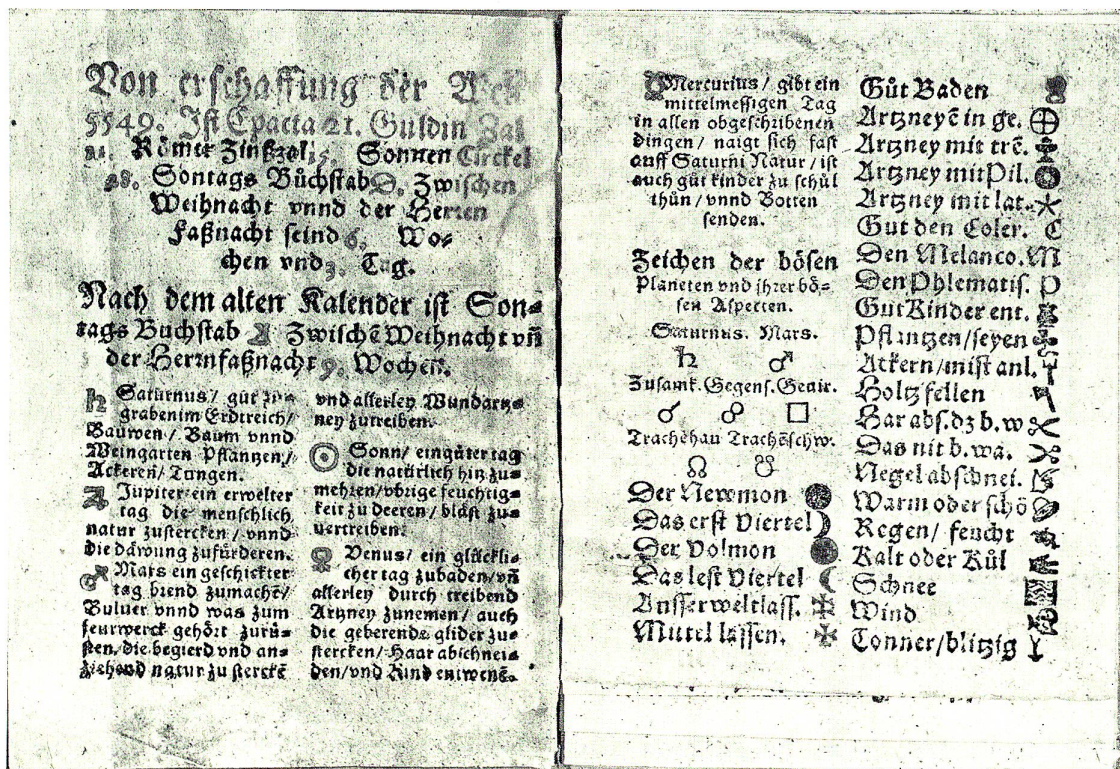 Von erschaffung der Welt
5549. Jst Epacta 21. Guldin Zal
21. Römer Zinßzal 15. Sonnen Circkel
28. Sontags Bůchstab D. Zwischen
Weihnacht vnnd der Herren
Faßnacht seind 6. Wo-
chen vnd 3. Tag.
Nach dem alten Kalender ist Son-
tags Buchstab Zwischē Weihnacht vñ
der Herrnfaßnacht 9. Wochen.
♄ Saturnus / gůt zů
graben im Erdtreich /
Bauwen / Baum vnnd
Weingarten Pflantzen /
Ackeren / Tungen.
♃ Jupiter ein erwelter
tag die menschlich
natur zustercken / vnnd
die däwung zufürderen.
♂ Mars ein geschickter
tag brend zumachē /
Buluer vnnd was zum
feurwerck gehört zurü-
sten, die begierd vnd an-
ziehend natur zu sterckē
vnd allerley Wundartz-
ney zutreiben.
☉ Sonn / ein gůter tag
die natürlich hitz zu-
mehren / vbrige feuchtig-
keit zu deeren / bläst zu-
uertreiben.
♀ Venus / ein glückli-
cher tag zubaden / vñ
allerley durch treibend
Artzney zunemen / auch
die geberende glider zu-
stercken / Haar abschnei-
den / vnd Kind entwenē.
☿ Mercurius / gibt ein
mittelmessigen Tag
in allen obgeschribenen
dingen / naigt sich fast
auff Saturni Natur / ist
auch gůt kinder zu schůl
thůn / vnnd Botten
senden.
Zeichen der bösen
Planeten vnd jhrer bö-
sen Aspecten.
Saturnus. Mars.
♄ ♂
Zusamk. Gegens. Geuir.
☌ ☍ □
Trachēhau Trachēschw.
☊ ☋
Der Newmon
Das erst Viertel
Der Volmon
Das lest Viertel
Ausserweltlass.
Mittel lassen.
Gůt Baden
Artzneyē in ge.
Artzney mit trē.
Artzney mit Pil.
Artzney mit lat.
Gut den Coler. C
Den Melanco. M
Den Phlematis. P
Gut Kinder ent.
Pflantzen / seyen
Ackern / mist anl.
Holtz fellen
Har abs. dz b. w
Das nit b. wa.
Negel abschnei.
Warm oder schö
Regen / feucht
Kalt oder Kůl
Schnee
Wind
Tonner / blitzig